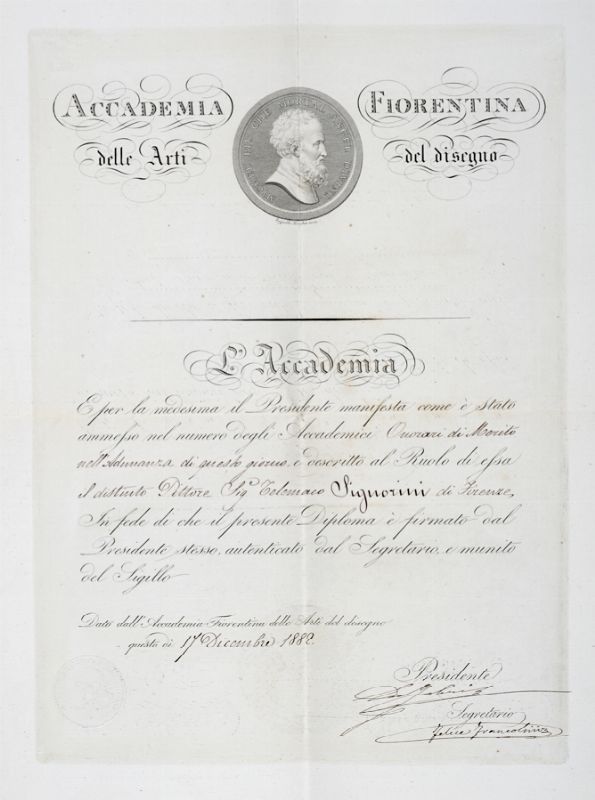 ACCADEMIA FIORENTINA
delle Arti del disegno
L'Accademia
E per la medesima il Presidente manifesta come è stato
ammesso nel numero degli Accademici Onorari di Merito
nell'Adunanza di questo giorno, e descritto al Ruolo di essa
il distinto Pittore Sig.r Telemaco Signorini di Firenze,
In fede di che il presente Diploma è firmato dal
Presidente stesso, autenticato dal Segretario, e munito
del Sigillo
Dato dall'Accademia Fiorentina delle Arti del disegno
questo dì 17 Dicembre 1882.
Presidente
Segretario
Felice Francolini